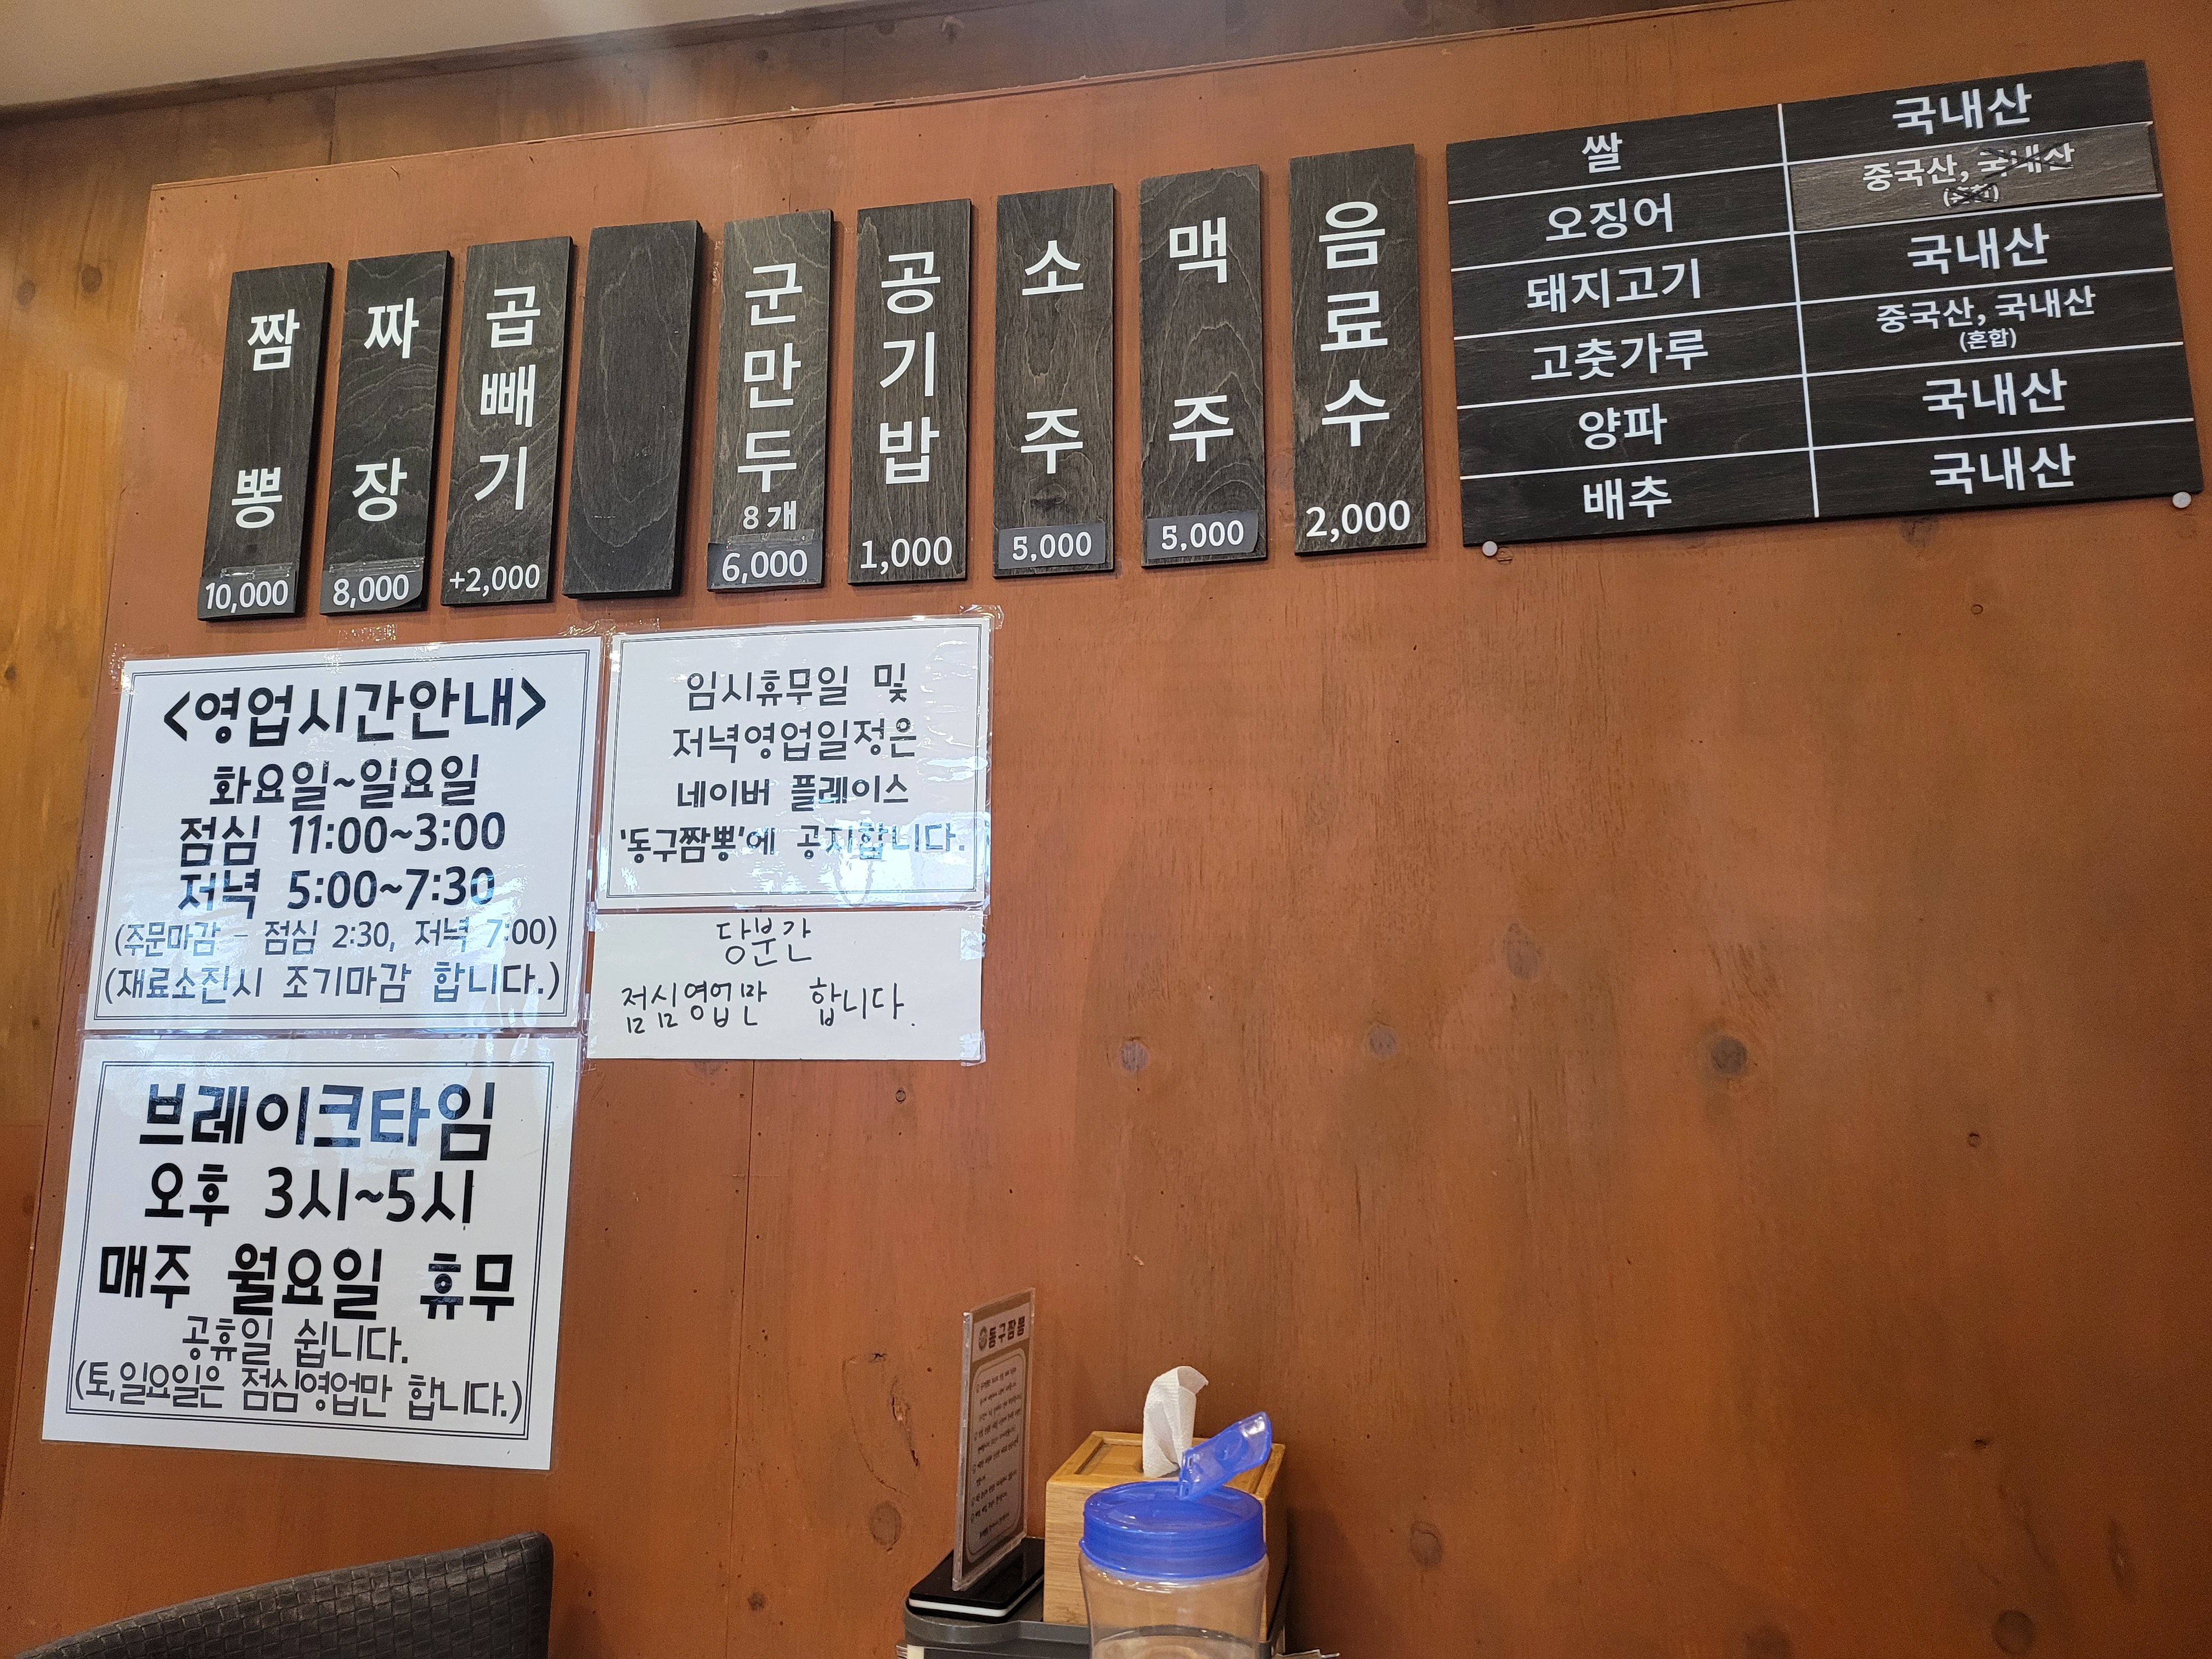 짬뽕
10,000
짜장
8,000
곱빼기
+2,000
군만두
8개
6,000
공기밥
1,000
소주
5,000
맥주
5,000
음료수
2,000
쌀 국내산
오징어 중국산, 국내산
돼지고기 국내산
고춧가루 중국산, 국내산
(혼합)
양파 국내산
배추 국내산
<영업시간안내>
화요일~일요일
점심 11:00~3:00
저녁 5:00~7:30
(주문마감 - 점심 2:30, 저녁 7:00)
(재료소진시 조기마감 합니다.)
임시휴무일 및
저녁영업일정은
네이버 플레이스
'동구짬뽕'에 공지합니다.
당분간
점심영업만 합니다.
브레이크타임
오후 3시~5시
매주 월요일 휴무
공휴일 쉽니다.
(토,일요일은 점심영업만 합니다.)
동구짬뽕